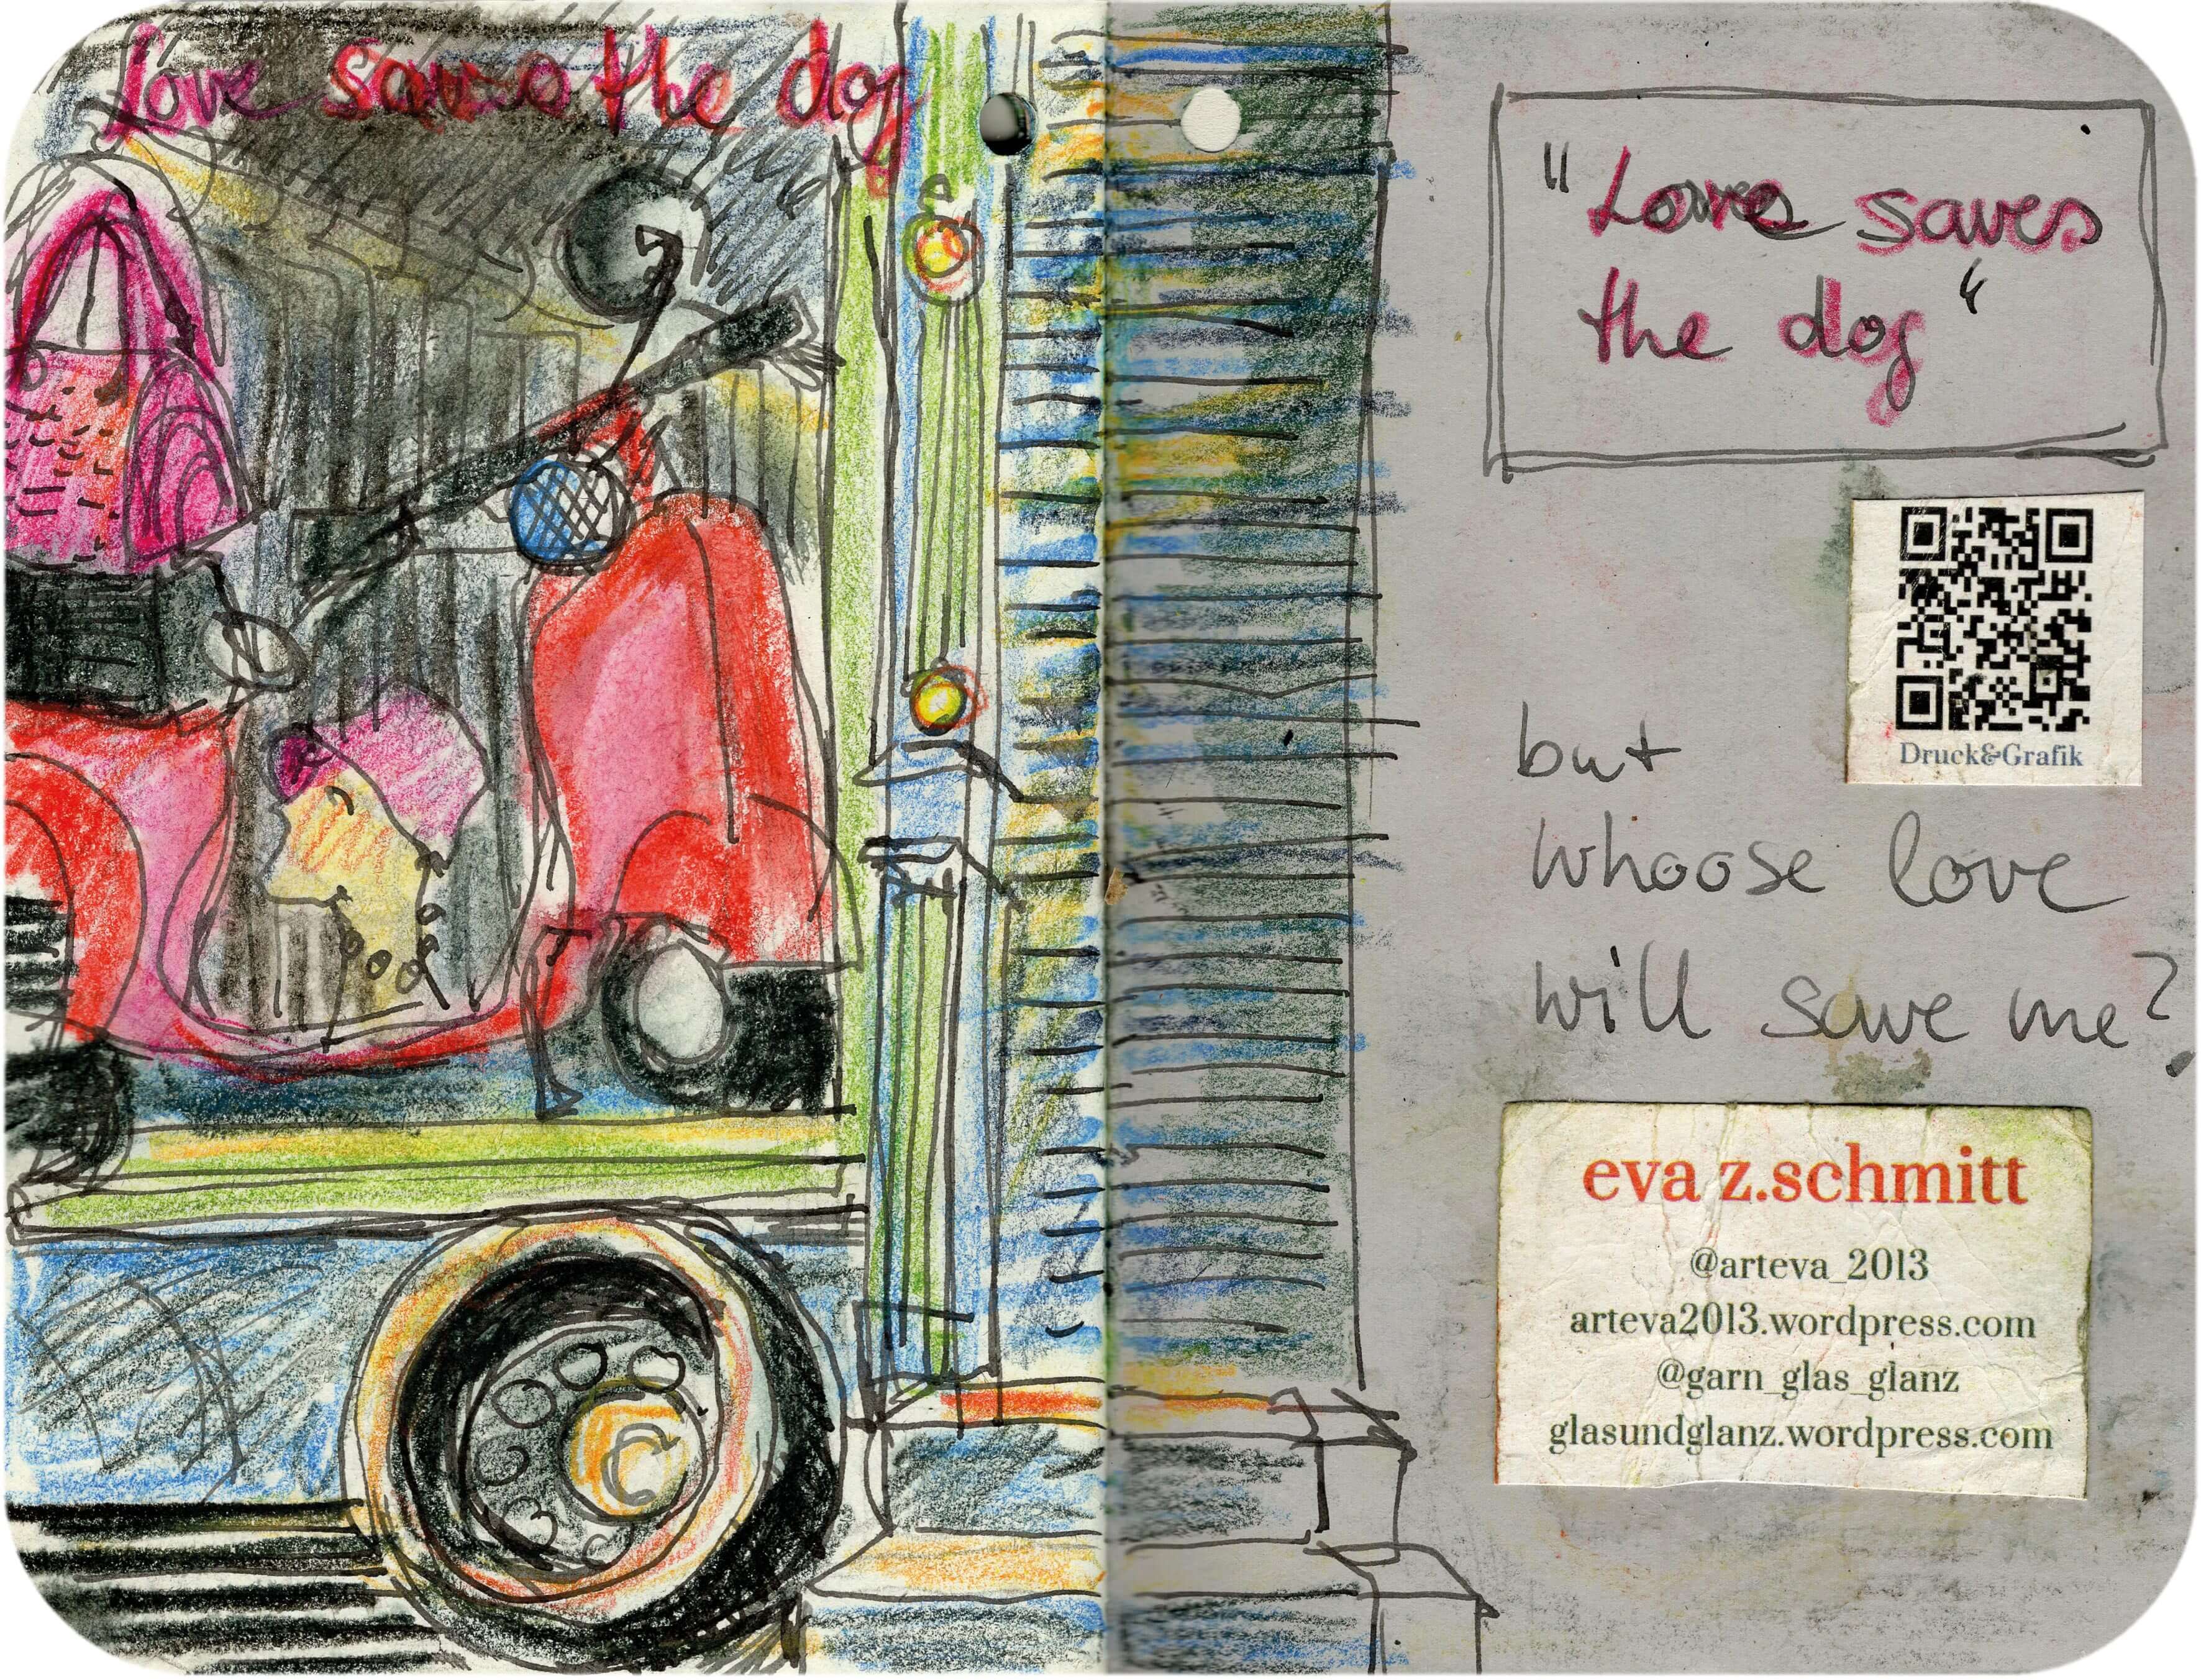 Love saves the dog
"Love saves
the dog"
Druck&Grafik
but
whoose love
will save me?
eva z.schmitt
@arteva_2013
arteva2013.wordpress.com
@garn_glas_glanz
glasundglanz.wordpress.com